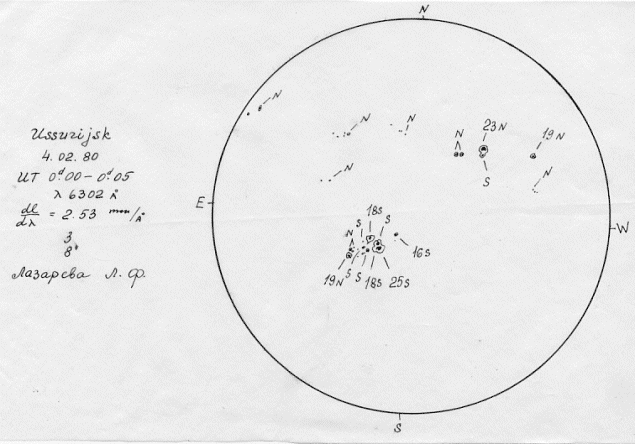 Ussurijsk
4.02.80
UT 0ᵈ.00 – 0ᵈ.05
λ 6302 Å
dl/dλ = 2.53 mm/Å
3
8"
Лазарева Л. Ф.
N
N
N
N
N
23N
19N
S
N
N
E
W
18S
S
S
N
16S
S
S
19N
18S
25S
S